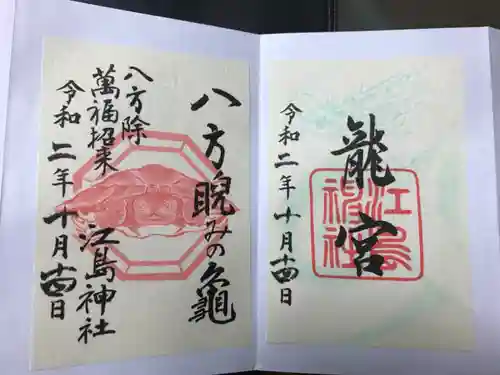 龍宮
江島神社
令和二年十月十四日
八方睨みの亀
八方除
萬福招来
江島神社
令和二年十月十四日